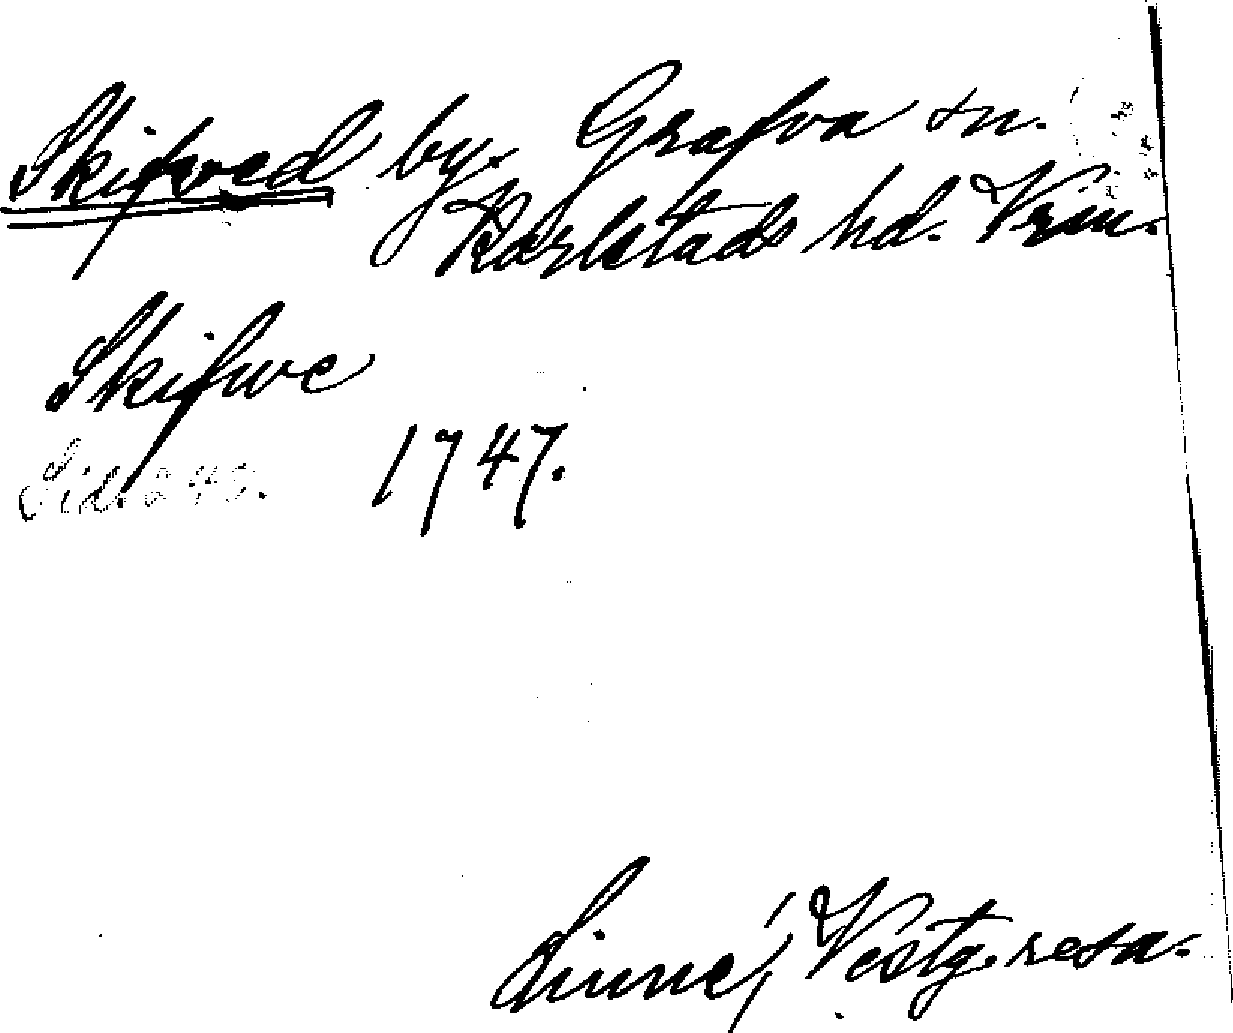 Skifved by. Grafva sn.
Karlstads hd. Vrm.
Skifwe
Sid. 243. 1747.
Linné, Vestg. resa.